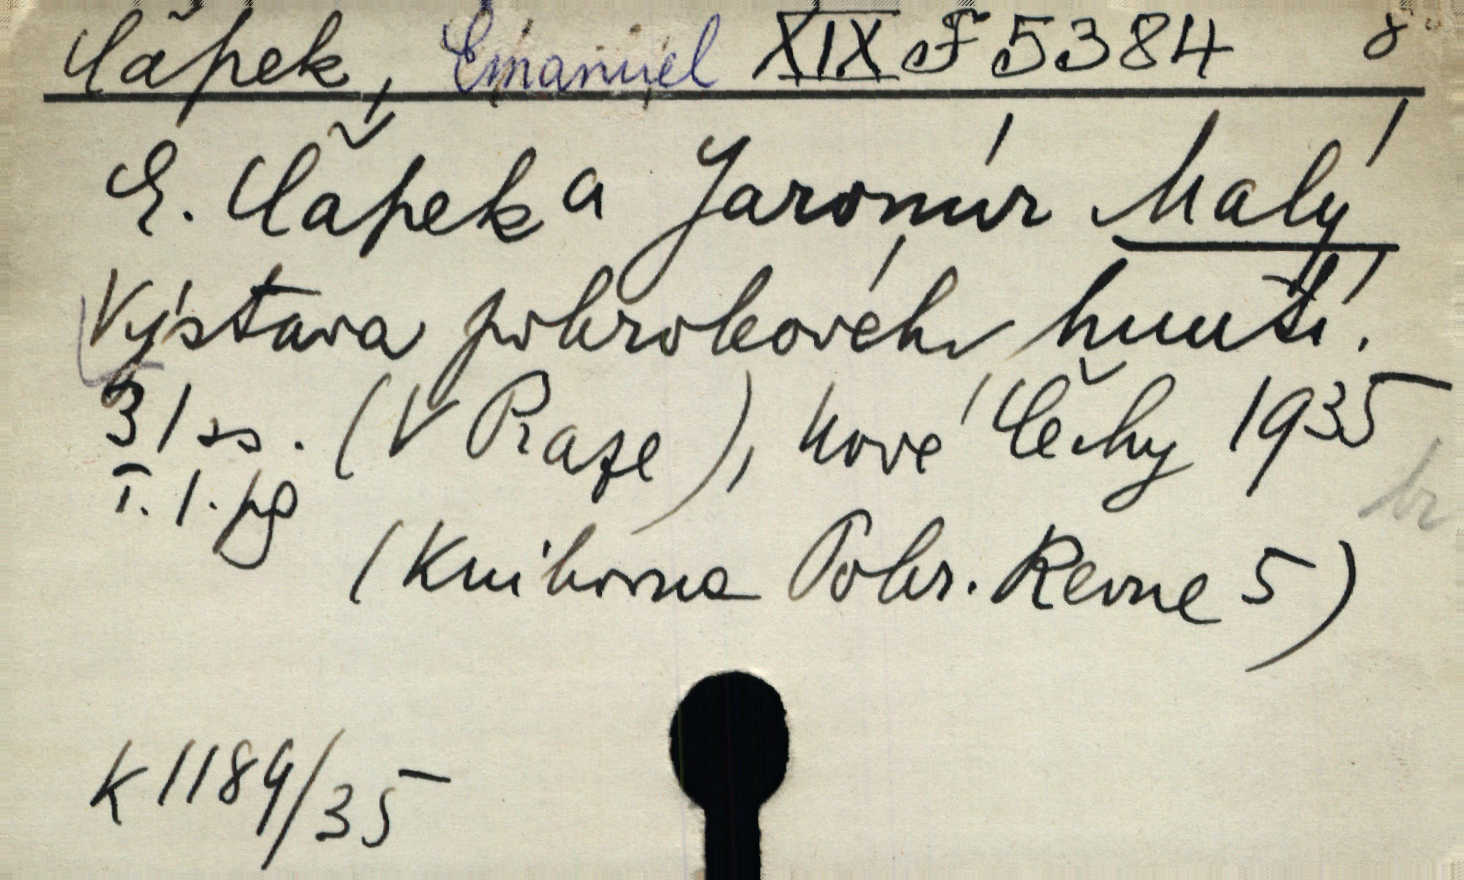 Čápek, Emanuel XIX F 5384 8°
E. Čápek a Jaromír Malý
Výstava pokrokového hnutí.
31 ss. (V Praze), Nové Čechy 1935
I. 1. pg
(Knihovna Pokr. Revue 5)
K 1189/35